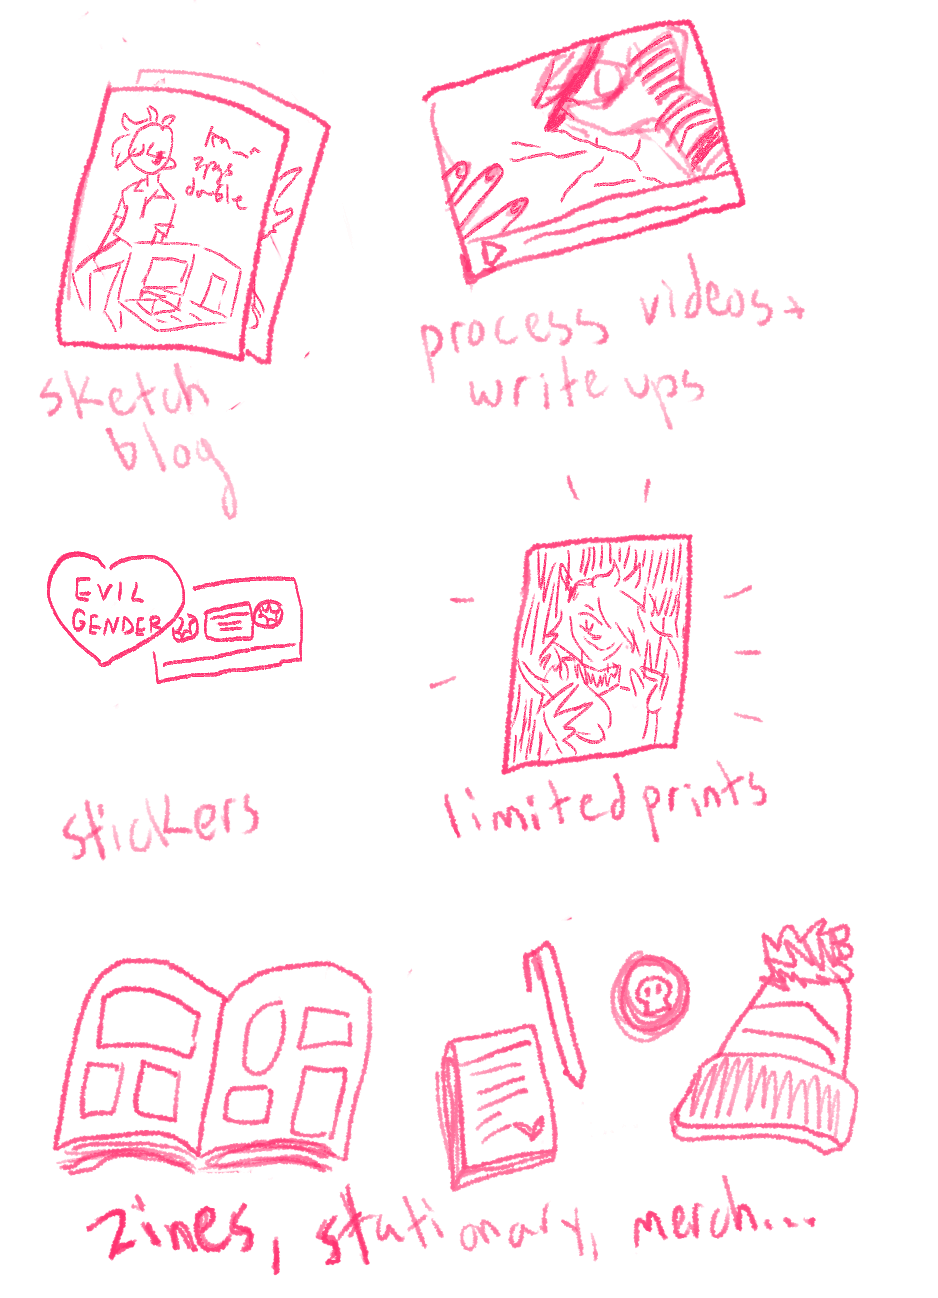 zpgs
double
sketch
blog
process videos +
write ups
EVIL
GENDER
stickers
limited prints
zines, stationary, merch...